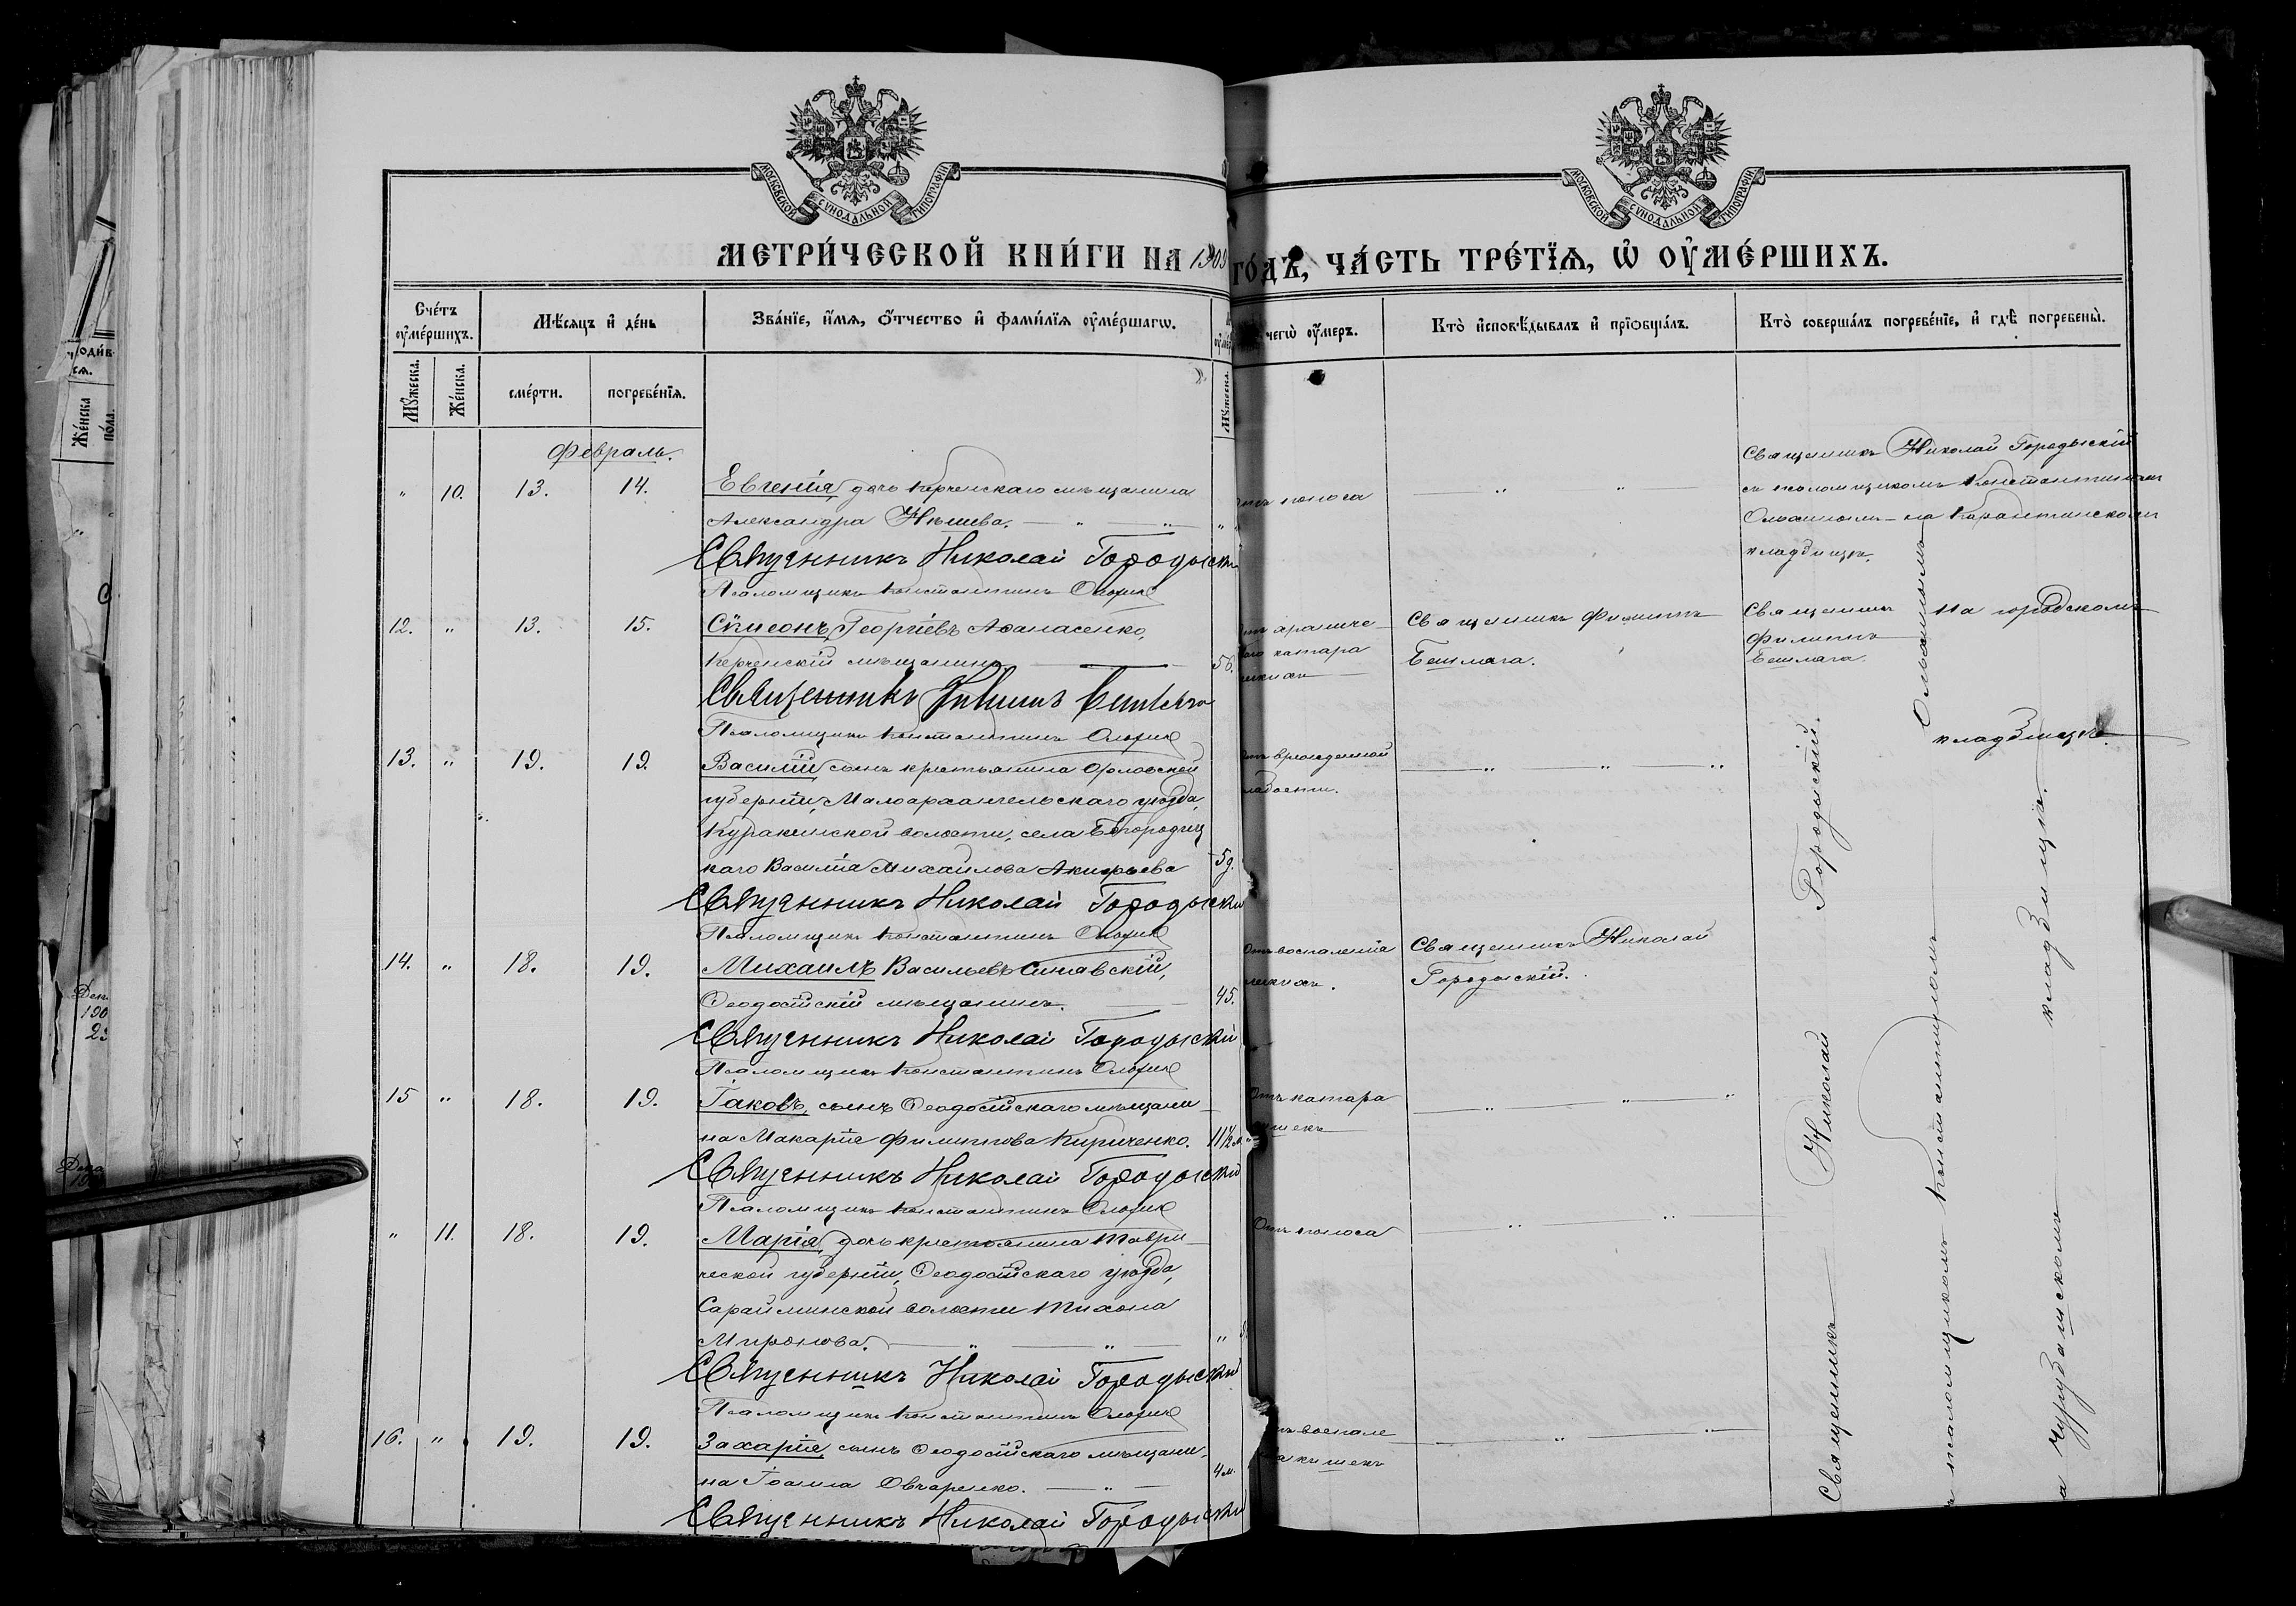 МОСКОВСКОЙ СУНОДАЛЬНОЙ ТИПОГРАФІИ
МОСКОВСКОЙ СУНОДАЛЬНОЙ ТИПОГРАФІИ
МЕТРИ́ЧЕСКОЙ КНИ́ГИ НА 190 ГО́ДЪ, ЧА́СТЬ ТРЕ́ТЇѦ, Ѡ҆ ОУ҆МЕ́РШИХЪ.
Сче́тъ оу҆ме́ршихъ.
Мѣ́сяцъ и҆ де́нь
Зва́нїе, и҆́мѧ, ѻ҆́тчество и҆ фами́лїѧ оу҆ме́ршагѡ.
чегѡ̀ оу҆́меръ.
Кто̀ и҆сповѣ́дывалъ и҆ прїѡбща́лъ.
Кто̀ соверша́лъ погребе́нїе, и҆ гдѣ̀ погребены̀.
Мꙋ́жеска.
Же́нска.
сме́рти.
погребе́нїѧ.
Мꙋ́жеска.
Февраль.
" 10. 13. 14.
Евгенія, дочь Керченскаго мѣщанина
Александра
Священникъ Николай Городыскій
Псаломщикъ Константинъ
поноса
Священникъ Николай Городыскій
съ псаломщикомъ Константиномъ
на Карантинскомъ
кладбищѣ.
12. " 13. 15.
Сѵмеонъ Георгіевъ Аѳанасенко,
Керченскій мѣщанинъ. 56.
Священникъ Филиппъ
Псаломщикъ Константинъ
хрониче
катара
Священникъ Филиппъ
Священникъ
Филиппъ
на городскомъ
кладбищѣ.
13. " 19. 19.
Василій, сынъ крестьянина Орловской
губерніи, Малоархангельскаго уѣзда,
Куракинской волости, села Богородиц
каго Василія Михайлова 5 д.
Священникъ Николай Городыскій
Псаломщикъ Константинъ
врожденной
слабости.
14. " 18. 19.
Михаилъ Васильевъ Синявскій,
Ѳеодосійскій мѣщанинъ. 45.
Священникъ Николай Городыскій
Псаломщикъ Константинъ
Отъ воспаленія
легкихъ.
Священникъ Николай
Городыскій.
15 " 18. 19.
Іаковъ, сынъ Ѳеодосійскаго мѣщани
на Макарія Филиппова Кириченко. 11½ м.
Священникъ Николай Городыскій
Псаломщикъ Константинъ
Отъ катара
кишекъ
" 11. 18. 19.
Марія, дочь крестьянина Таври
ческой губерніи, Ѳеодосійскаго уѣзда,
Сарайминской волости Тихона
Миронова.
Священникъ Николай Городыскій
Псаломщикъ Константинъ
Отъ поноса
16. " 19. 19.
Захарія, сынъ Ѳеодосійскаго мѣщани
на Іоанна Овчаренко. 4 м.
Священникъ Николай Городыскій
воспале
кишекъ
Священникъ Николай Городыскій.
псаломщикомъ Константиномъ
кладбищѣ.